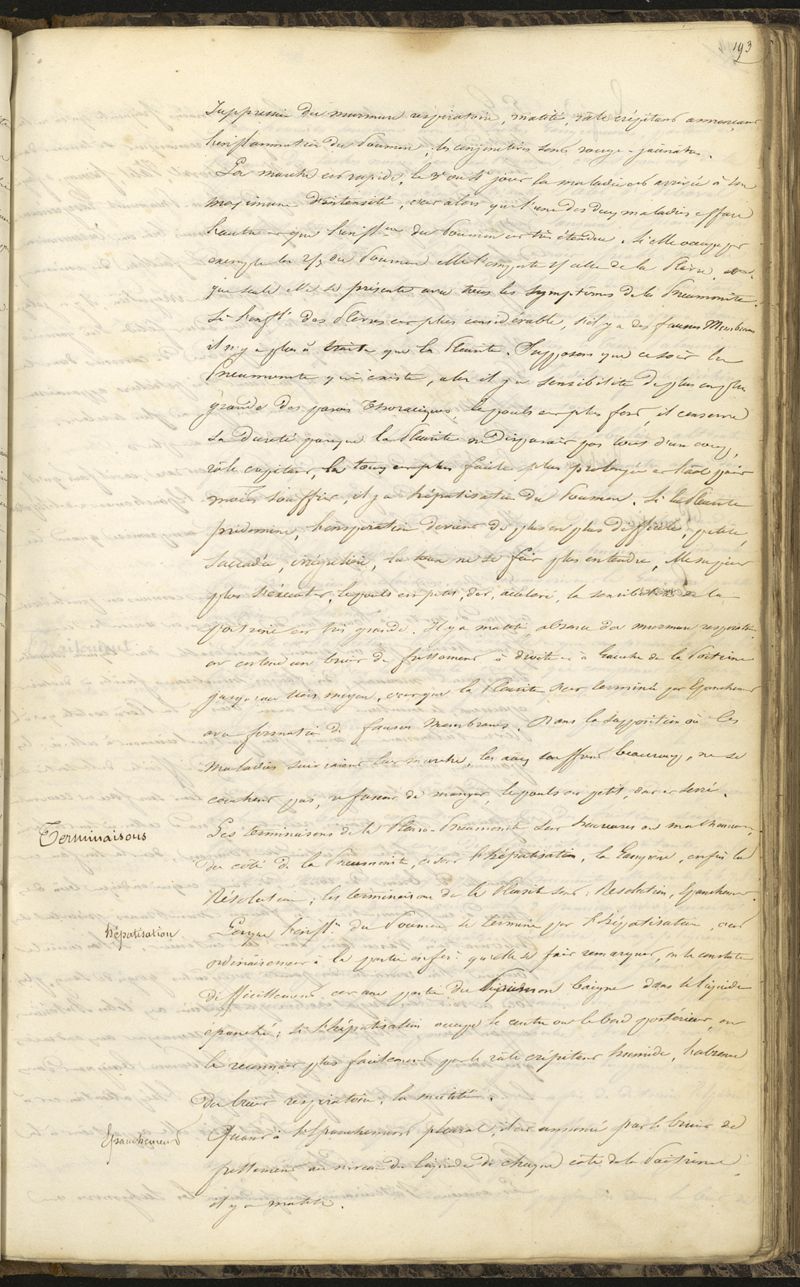 193
Suppression du murmure respiratoire, matité, râle crépitant annonçant
l'inflammation du Poumon, les conjonctives sont rouge-jaunatre.
La marche est rapide, le 3e ou 4e jour la maladie est arrivée à son
maximum d'intensité, c'est alors que l'une des deux maladies efface
l'autre que l'inflon du Poumon est très étendue. Si elle occupe par
exemple les 2/3 du Poumon elle l'emporte celle de la Plèvre,
que seule elle se présente avec tous les symptômes de la Pneumonite.
Si l'inflon des Plèvres est plus considérable, s'il y a des fausses Membranes
il n'y a plus à traiter que la Pleurite. Supposons que ce soit la
Pneumonite qui existe, alors il y a sensibilité de plus en plus
grande des parois Thoraciques, le pouls est plus fort, il conserve
sa dureté parce que la Pleurite ne disparait pas tout d'un coup,
râle crépitant, la toux est plus faible plus prolongée et l'air parait
moins souffrir, il y a hépatisation du Poumon. Si la Pleurite
prédomine, l'inspiration devient de plus en plus difficile, petite,
saccadée, irrégulière, la toux ne se fait plus entendre, elle ne peut
plus s'exécuter, le pouls est petit, dur, accéléré, la sensibilité de la
poitrine est très grande. Il y a matité, absence du murmure respiratoire
on entend un bruit de frottement à droite et à gauche de la Poitrine
jusqu'au tiers moyen, c'est que la Pleurite s'est terminée par Epanchement
avec formation de fausses Membranes. Dans la supposition où les
Maladies suivraient leur marche, les aux souffrent beaucoup, ne se
couchent pas, refusent de manger, le pouls est petit, dur et serré.
Terminaisons
Les terminaisons de la Pleuro-Pneumonite sont heureuses ou malheureuses,
du coté de la Pneumonite, ce sont l'hépatisation, la Gangrène, enfin la
Résolution; les terminaisons de la Pleurite sont: Resolution, Epanchement.
hépatisation
Lorsque l'inflon du Poumon se termine par l'hépatisation, c'est
ordinairement à la partie infre qu'elle se fait remarquer, on le constate
difficilement car une partie du Poumon baigne dans le liquide
épanché; si l'hépatisation occupe le centre ou le bord postérieur, on
le reconnait plus facilement par le râle crépitant humide, l'absence
du bruit respiratoire, la matité.
Epanchement
Quant à l'Epanchement pleural, il est annoncé par le bruit de
frottement au niveau du liquide de chaque coté de la Poitrine,
il y a matité.